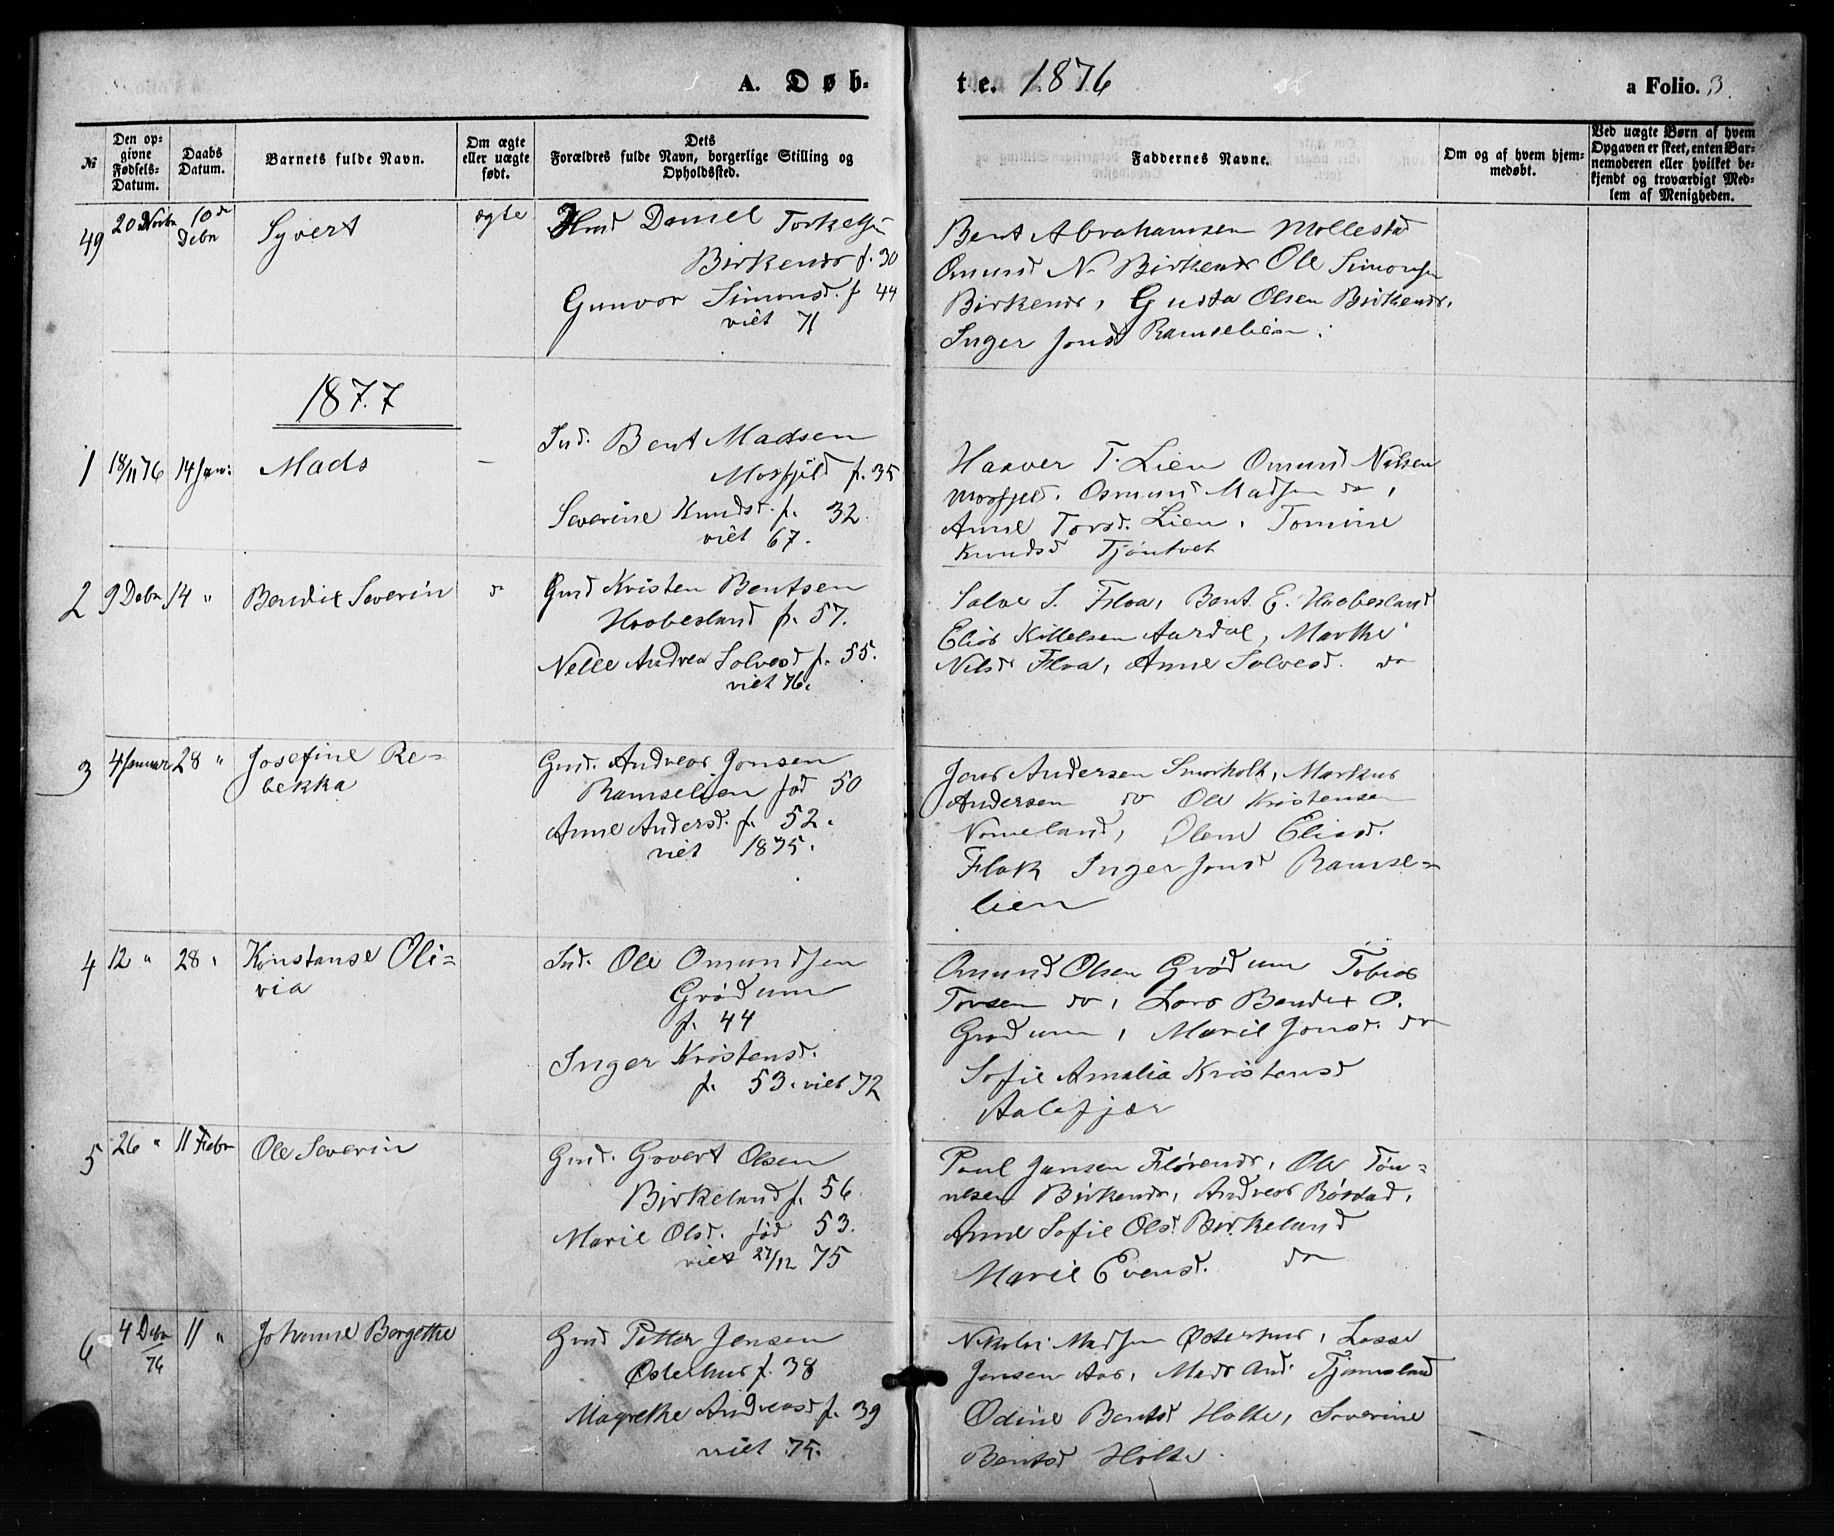 A. Døb-
te. 1876
a Folio. 3.
№
Den op-
givne
Fødsels-
Datum.
Daabs
Datum.
Barnets fulde Navn.
Om ægte
eller uægte
født.
Dets
Forældres fulde Navn, borgerlige Stilling og
Opholdssted.
Faddernes Navne.
Om og af hvem hjem-
medøbt.
Ved uægte Børn af hvem
Opgaven er skeet, enten Bar-
nemoderen eller hvilket be-
kjendt og troværdigt Med-
lem af Menigheden.
49
20 Novbr
10de
Debr
Syvert
ægte
Daniel Torkelsen
Birkenes f. 30
Gunvor Simonsd. f 44
viet 71
Bent Abrahamsen Mollestad
Omund N. Birkenes Ole Simonsen
Birkenes, Gusta Olsen Birkenes,
Inger Jonsd Ramselien.
1877
1
18/11 76
14 Jan:
Mads
Ind. Bent Madsen
Mosfjeld f. 35
Severine Knudsd. f. 32.
viet 67.
Haaver T. Lien Omund Nilsen
Mosfjeld. Osmund Madsen do,
Anne Torsd. Lien, Tomine
Knudsd Tjøntvet
2
9 Debr
14 "
Bendix Severin
do
Gmd Kristen Bentsen
Hobesland f. 57.
Nelle Andrea Solvesd f. 55.
viet 76.
Salve S. Flaa, Bent E. Hobesland
Elias Kittelsen Aardal, Marthe
Nilsd Flaa, Anne Salvesd. do
3
4 Januar
28 "
Josefine Re-
bekka
Gmd. Andreas Jonsen
Ramselien fød 50
Anne Andersd. f. 52.
viet 1875.
Jens Andersen Smorholt, Markus
Andersen do Ole Kristensen
Nomeland, Olene Eliasd.
Flak Inger Jonsd Ramse-
lien
4
12 "
28 "
Konstanse Oli-
via
Ind. Ole Omundsen
Grødum
f. 44
Inger Kristensd.
f. 53. viet 72
Omund Olsen Grødum Tobias
Torsen do, Lars Bendix O.
Grødum, Marie Jonsd. do
Sofie Amalia Kristensd
Aalefjær
5
26 "
11 Febr
Ole Severin
Gmd. Govert Olsen
Birkeland f. 56.
Marie Olsd. fød 53.
viet 27/12 75
Poul Jansen Flørenes, Ole Tøn-
nesen Birkenes, Andreas Røstad,
Anne Sofie Olsd Birkeland
Marie Evensd. do
6
4 Debr
/76
11 "
Johanne Borgethe
Gmd Petter Jensen
Østerhus f. 38
Magrethe Andreasd f. 39
viet 75.
Nikolai Madsen Østerhus, Lasse
Jensen Aas, Mads And. Tjomsland
Odine Bentsd Holte, Severine
Bentsd Holte.